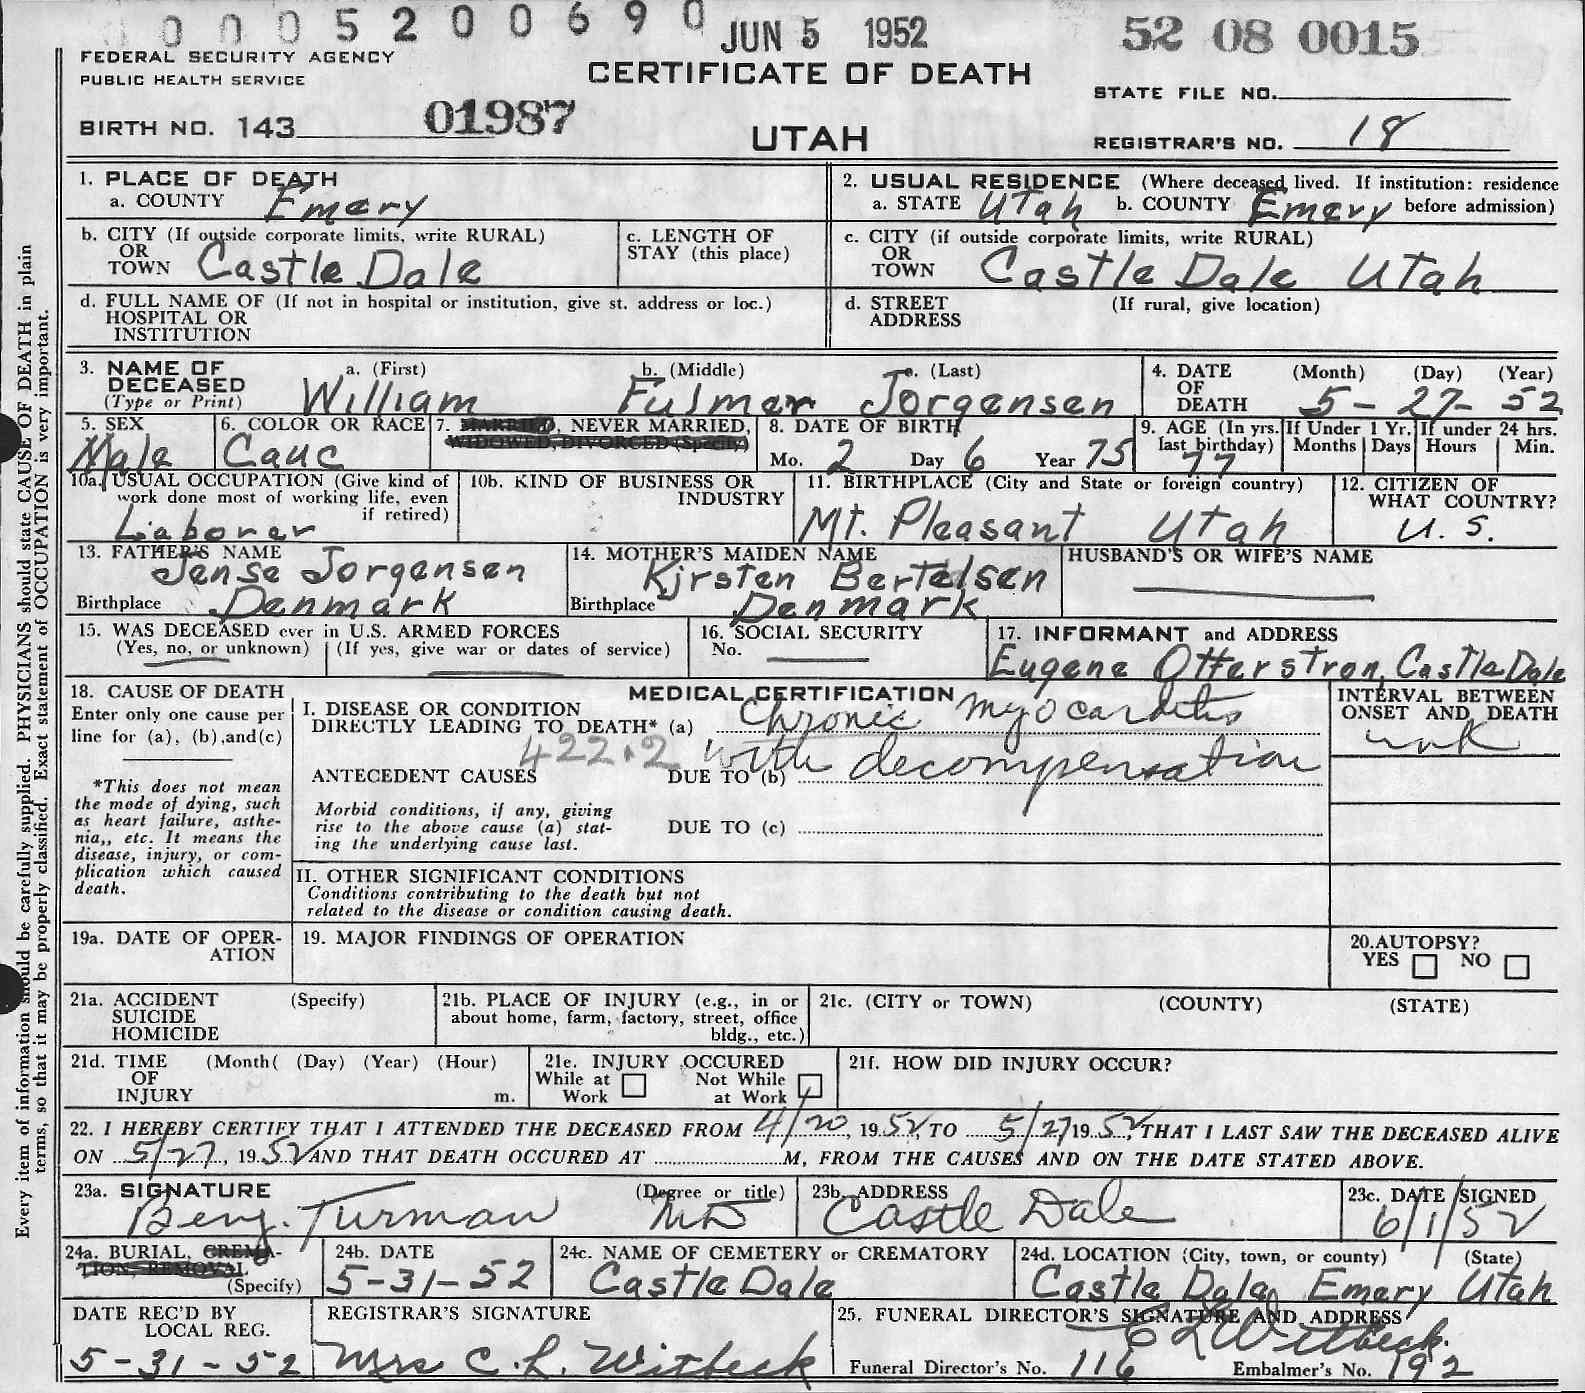 0 0 0 5 2 0 0 6 9 0 JUN 5 1952 52 08 0015
FEDERAL SECURITY AGENCY
PUBLIC HEALTH SERVICE
CERTIFICATE OF DEATH
STATE FILE NO.
BIRTH NO. 143 01987
UTAH
REGISTRAR'S NO. 18
1. PLACE OF DEATH
a. COUNTY Emery
2. USUAL RESIDENCE (Where deceased lived. If institution: residence
a. STATE Utah b. COUNTY Emery before admission)
b. CITY (If outside corporate limits, write RURAL)
OR
TOWN Castle Dale
c. LENGTH OF
STAY (this place)
c. CITY (if outside corporate limits, write RURAL)
OR
TOWN Castle Dale Utah
d. FULL NAME OF (If not in hospital or institution, give st. address or loc.)
HOSPITAL OR
INSTITUTION
d. STREET (If rural, give location)
ADDRESS
3. NAME OF
DECEASED
(Type or Print)
a. (First) b. (Middle) c. (Last)
William Fulmer Jorgensen
4. DATE (Month) (Day) (Year)
OF
DEATH 5-27-52
5. SEX
Male
6. COLOR OR RACE
Cauc
7. MARRIED, NEVER MARRIED,
WIDOWED, DIVORCED (Specify)
8. DATE OF BIRTH
Mo. 2 Day 6 Year 75
9. AGE (In yrs.
last birthday)
77
If Under 1 Yr.
Months Days
If under 24 hrs.
Hours Min.
10a. USUAL OCCUPATION (Give kind of
work done most of working life, even
if retired)
Laborer
10b. KIND OF BUSINESS OR
INDUSTRY
11. BIRTHPLACE (City and State or foreign country)
Mt. Pleasant Utah
12. CITIZEN OF
WHAT COUNTRY?
U.S.
13. FATHER'S NAME
Jense Jorgensen
Birthplace Denmark
14. MOTHER'S MAIDEN NAME
Kirsten Bertelsen
Birthplace Denmark
HUSBAND'S OR WIFE'S NAME
15. WAS DECEASED ever in U.S. ARMED FORCES
(Yes, no, or unknown) (If yes, give war or dates of service)
16. SOCIAL SECURITY
No.
17. INFORMANT and ADDRESS
Eugene Otterstrom, Castle Dale
18. CAUSE OF DEATH
Enter only one cause per
line for (a), (b), and (c)
*This does not mean
the mode of dying, such
as heart failure, asthe-
nia,, etc. It means the
disease, injury, or com-
plication which caused
death.
MEDICAL CERTIFICATION
I. DISEASE OR CONDITION
DIRECTLY LEADING TO DEATH* (a) Chronic myocarditis
422.2 with decompensation
ANTECEDENT CAUSES DUE TO (b)
Morbid conditions, if any, giving
rise to the above cause (a) stat-
ing the underlying cause last.
DUE TO (c)
INTERVAL BETWEEN
ONSET AND DEATH
unk
II. OTHER SIGNIFICANT CONDITIONS
Conditions contributing to the death but not
related to the disease or condition causing death.
19a. DATE OF OPER-
ATION
19. MAJOR FINDINGS OF OPERATION
20.AUTOPSY?
YES NO
21a. ACCIDENT (Specify)
SUICIDE
HOMICIDE
21b. PLACE OF INJURY (e.g., in or
about home, farm, factory, street, office
bldg., etc.)
21c. (CITY or TOWN) (COUNTY) (STATE)
21d. TIME (Month( (Day) (Year) (Hour)
OF
INJURY m.
21e. INJURY OCCURED
While at Not While
Work at Work
21f. HOW DID INJURY OCCUR?
22. I HEREBY CERTIFY THAT I ATTENDED THE DECEASED FROM 4/20, 19 52, TO 5/27 19 52, THAT I LAST SAW THE DECEASED ALIVE
ON 5/27, 19 52 AND THAT DEATH OCCURED AT M, FROM THE CAUSES AND ON THE DATE STATED ABOVE.
23a. SIGNATURE (Degree or title)
Benj. Turman MD
23b. ADDRESS
Castle Dale
23c. DATE SIGNED
6/1/52
24a. BURIAL, CREMA-
TION, REMOVAL
(Specify)
24b. DATE
5-31-52
24c. NAME OF CEMETERY or CREMATORY
Castle Dale
24d. LOCATION (City, town, or county) (State)
Castle Dale, Emery Utah
DATE REC'D BY
LOCAL REG.
5-31-52
REGISTRAR'S SIGNATURE
Mrs C. L. Witbeck
25. FUNERAL DIRECTOR'S SIGNATURE AND ADDRESS
C L Witbeck.
Funeral Director's No. 116 Embalmer's No. 192
Every item of information should be carefully supplied. PHYSICIANS should state CAUSE OF DEATH in plain
terms, so that it may be properly classified. Exact statement of OCCUPATION is very important.